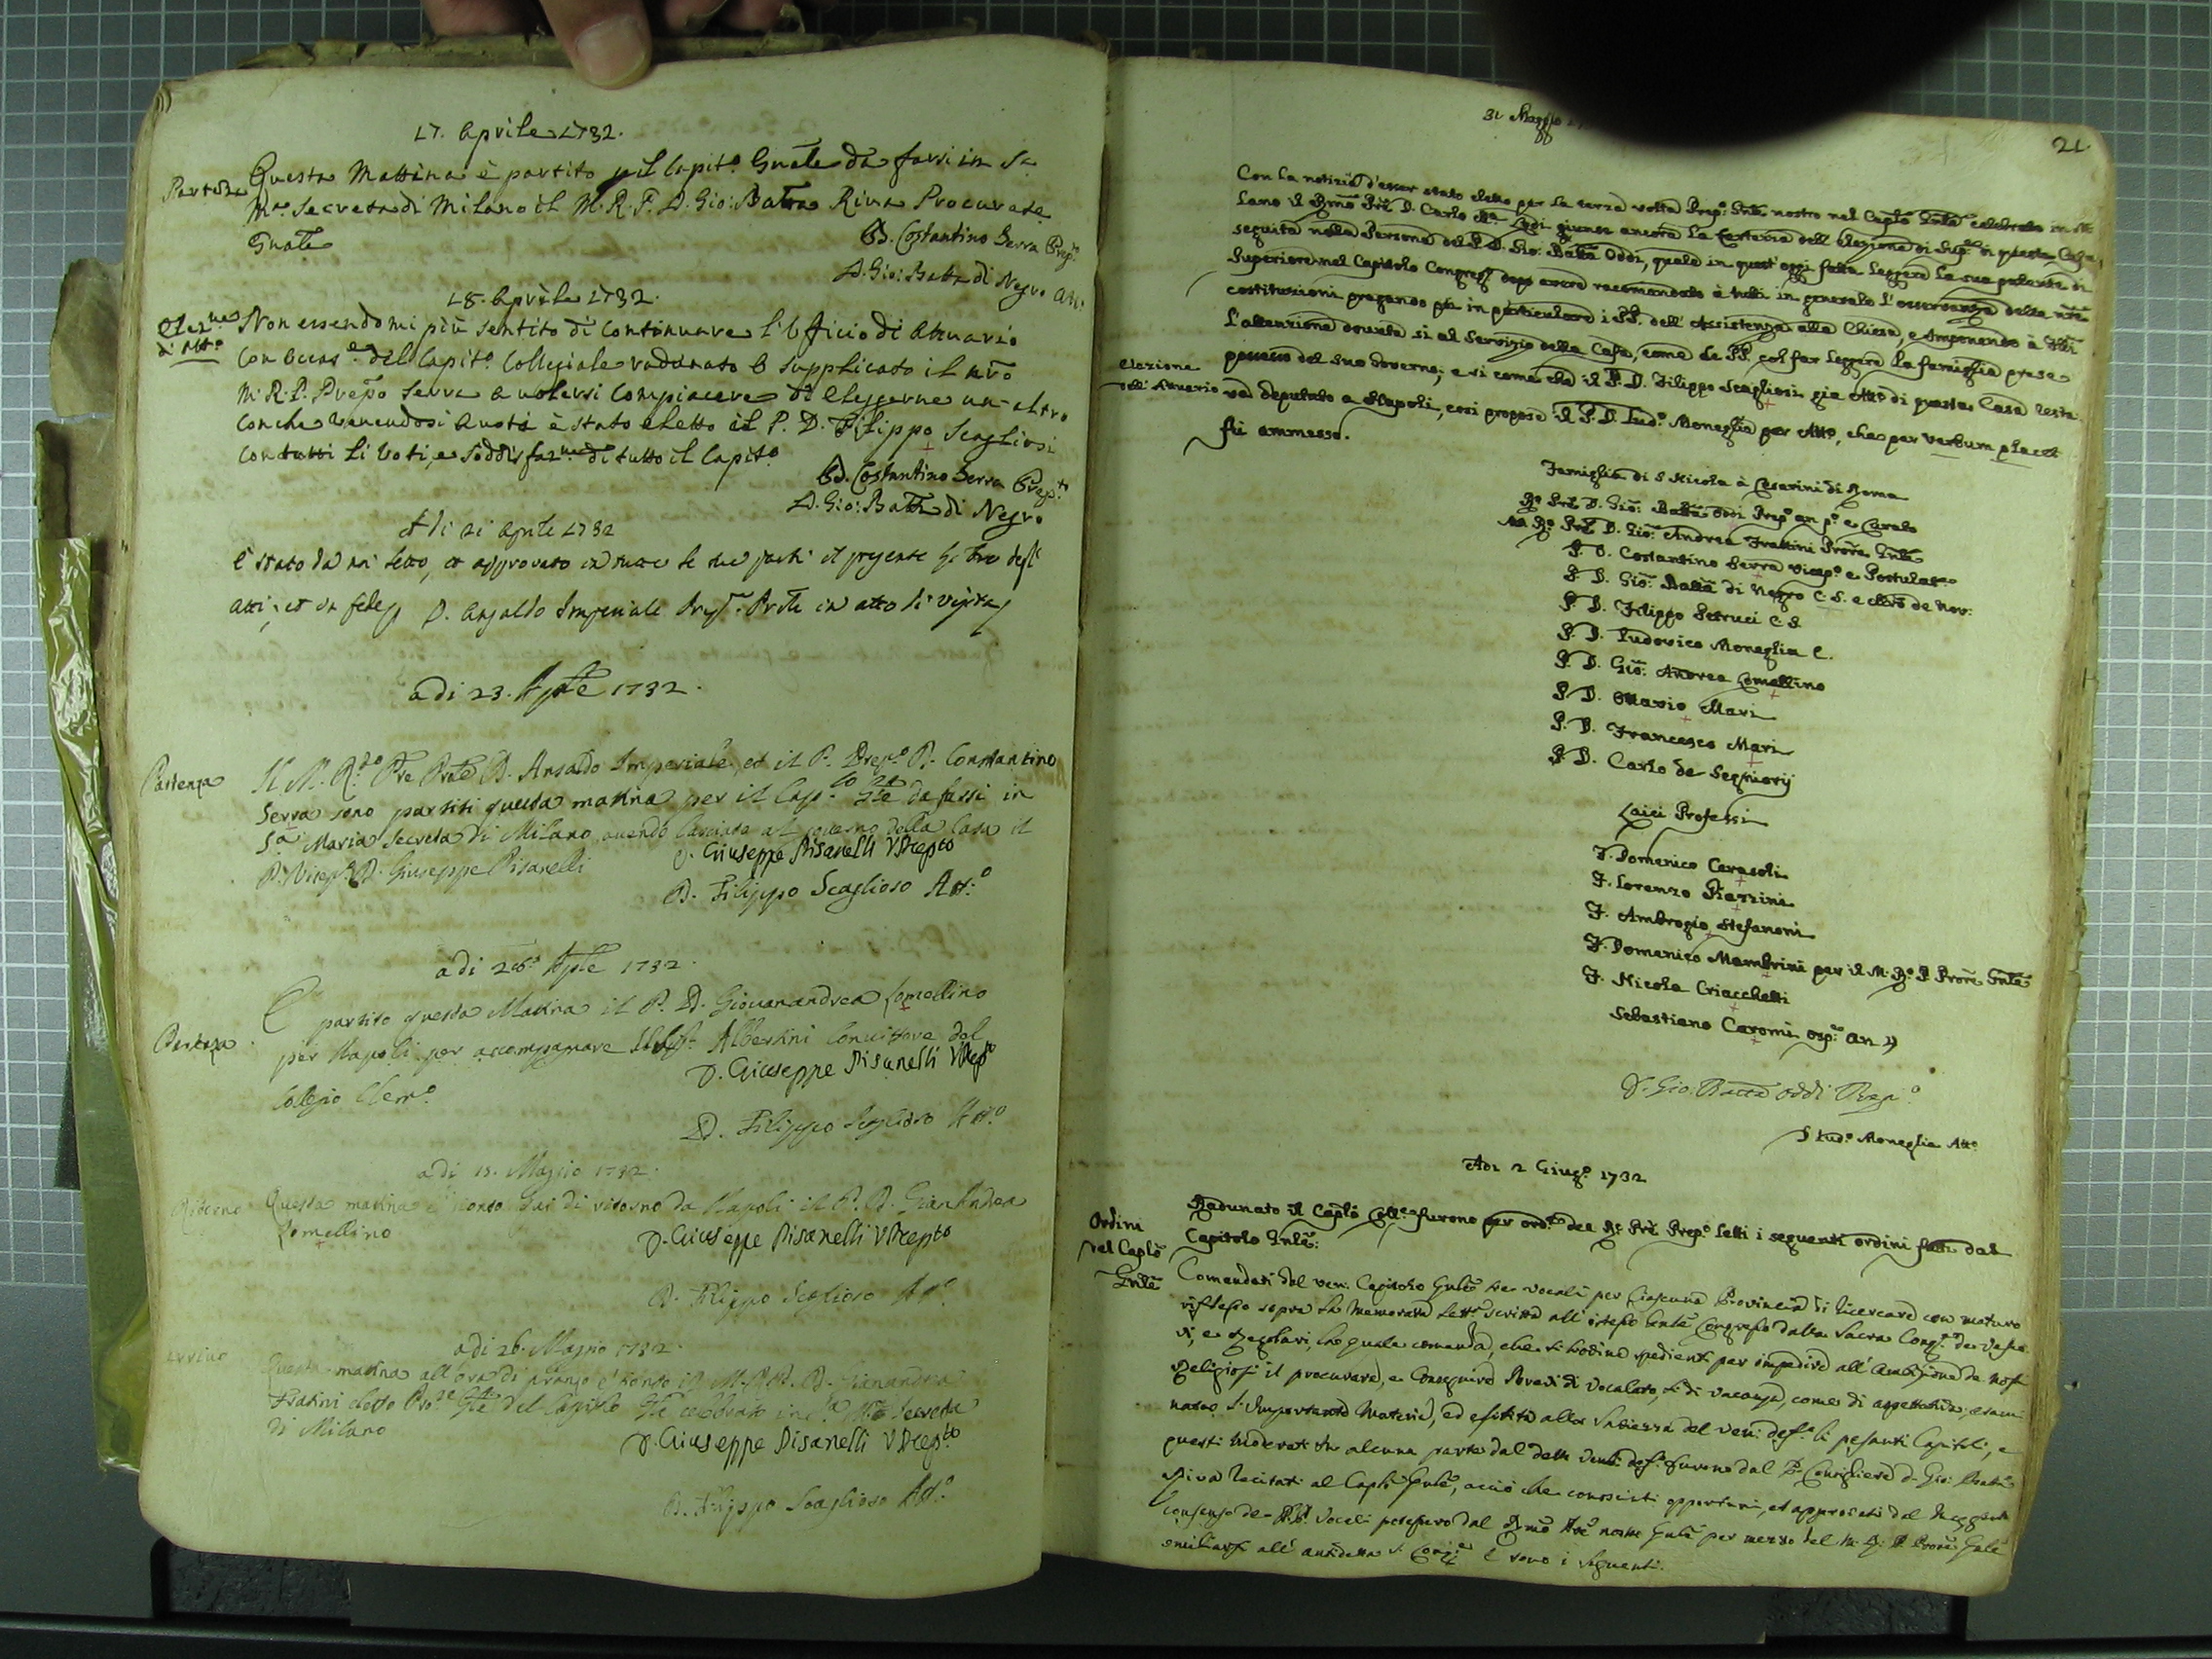 17. Aprile 1732.
Partenza
Questa Mattina è partito p il Capit.o Gnāle da farsi in S.a
M.a Secreta di Milano il M. R. P. D. Gio: Batta Riva Procurate
Gnāle
D. Costantino Serra Prep.to
D. Gio: Batta di Negro Att.o
18. Aprile 1732.
Elez.ne
d'Att.o
Non essendomi più sentito di continuare l'Officio di Attuario
del Capit.o Collegiale radunato ò supplicato il nr̃o
M. R. P. Prep̃o Serra a volersi Compiacere di Eleggerne un altro
Con che venendosi a voti è stato eletto il P. D. Filippo Scagliosi
con tutti li Voti, e Soddisfaz.ne di tutto il Capit.o
D. Costantino Serra Prep.to
D. Gio: Batta di Negro
A di 21 Aprile 1732
È stato da noi letto, et approvato in tutte le sue parti il presente Libro degl'
Atti, et in fede D. Ansaldo Imperiale Prep. Prōle in atto di visita
adi 23. Apr̃le 1732.
Partenza
Il M. R.do Pr̃e Prōle D. Ansaldo Imperiale, et il P. Prep.o D. Constantino
Serra sono partiti questa matina per il Cap.lo Gñle da farsi in
S.a Maria Secreta di Milano avendo lasciato al governo della Casa il
P. Vicep.o D. Giuseppe Pisanelli
D. Giuseppe Pisanelli VPrepto
D. Filippo Scaglioso Att.o
adi 26. Apr̃le 1732.
Partenza
È partito questa Matina il P. D. Giovanandrea Lomellino
per Napoli per accompagnare Albertini Convittore del
Collegio Clem.o
D. Giuseppe Pisanelli VPrepto
D. Filippo Scaglioso Att.o
adi 15. Maggio 1732.
Ritorno
Questa matina è tornato qui di ritorno da Napoli il P. D. GianAndrea
Lomellino
D. Giuseppe Pisanelli VPrepto
D. Filippo Scaglioso Att.o
adi 26. Maggio 1732.
Arrivo
Questa matina all'ora di pranzo è tornato il M. R. P. D. Gianandrea
Fratini eletto Pro.re Gñle del Capitolo Gñle celebrato in S.a M.a Secreta
di Milano
D. Giuseppe Pisanelli VPrepto
D. Filippo Scaglioso Att.o
31 Maggio
21
Con la notizia d'esser stato eletto per la terza volta Prep.o Gnl̃e nostro nel Caplo Gnl̃e celebrato in Mi
lano il Rmo Pr̃e D. Carlo M.a Lodi giunse ancora la certezza dell'Elezione di Sup.re in questa Casa,
seguita nella Persona del P. D. Gio: Batta Oddi, quale in quest'oggi fatta leggere la sua patente di
Superiore nel Capitolo Congreg.o dopo avere recomandato à tutti in generale l'osservanza delle nr̃e
costituzioni pregando poi in particulare i PP. dell'Assistenza alla Chiesa, e imponendo à tutti
l'attenzione dovuta si al Servizio della Casa, come de PP. col far leggere la famiglia prese
Elezione
dell'Attuario
possesso del suo Governo; e si come che il P. D. Filippo Scagliosi gia Att.o di questa Casa resta
va deputato a Napoli, così propose il P. D. Lud.o Moneglia per Att.o, che per verbum placet
fù ammesso.
Famiglia di S. Nicola à Cesarini di Roma
R.o Pr̃e D. Gio: Batta Oddi Prep.o an p.o e Curato
M. R.o Pr̃e D. Gio: Andrea Frattini Procr̃e Gnl̃e
P. D. Costantino Serra Vicep.o e Postulat.re
P. D. Gio: Batta di Negro C. S. e Mr̃o de Nov:
P. D. Filippo Petruci C. S.
P. D. Ludovico Moneglia C.
P. D. Gio: Andrea Lomellino
P. D. Ottavio Mari
P. D. Francesco Mari
P. D. Carlo de Segnorij
Laici Professi
F. Domenico Cerasoli
F. Lorenzo Piazzini
F. Ambrogio Stefanoni
F. Domenico Mambrini per il M. R.o P. Procr̃e Gnl̃e
F. Nicola Criacchetti
Sebastiano Caromi osp.o an
D. Gio: Batta Oddi Prep.o
D Lud.o Moneglia Att.o
Adi 2 Giug.o 1732
Ordini
del Caplo
Gnl̃e
Radunato il Caplo Coll.e furono per ord.e del R. Pr̃e Prep.o letti i seguenti ordini fatti dal
Capitolo Gnl̃e:
Comandati dal ven: Capitolo Gnl̃e tre vocali per Ciascuna Provincia di ricercare con maturo
riflesso sopra la memorata lett.a scritta all'istesso Gnl̃e Congresso dalla Sacra Cong.ne de Vesco
vi, e Regolari, la quale comanda, che si trovino spedienti per impedire all'ambizione de nostri
Religiosi il procurare, e conseguire Brevi di vocalato, sì di vacanza, come di aspettativa; esami
narono l'importante materia, ed esibiti alla saviezza del ven: def.o li pesanti Capitoli, e
questi moderati in alcuna parte dal detto ven: def.o furono dal P. Consigliere D. Gio: Batta
Riva recitati al Caplo Gnl̃e, acciò che conosciuti opportuni, et approvati dal maggior
consenso de PP. Vocali potessero dal Rmo Pr̃e nostro Gnl̃e per mezzo del M. R. P. Procr̃e Gnl̃e
umiliarsi all'antidetta S. Cong.e E sono i seguenti.